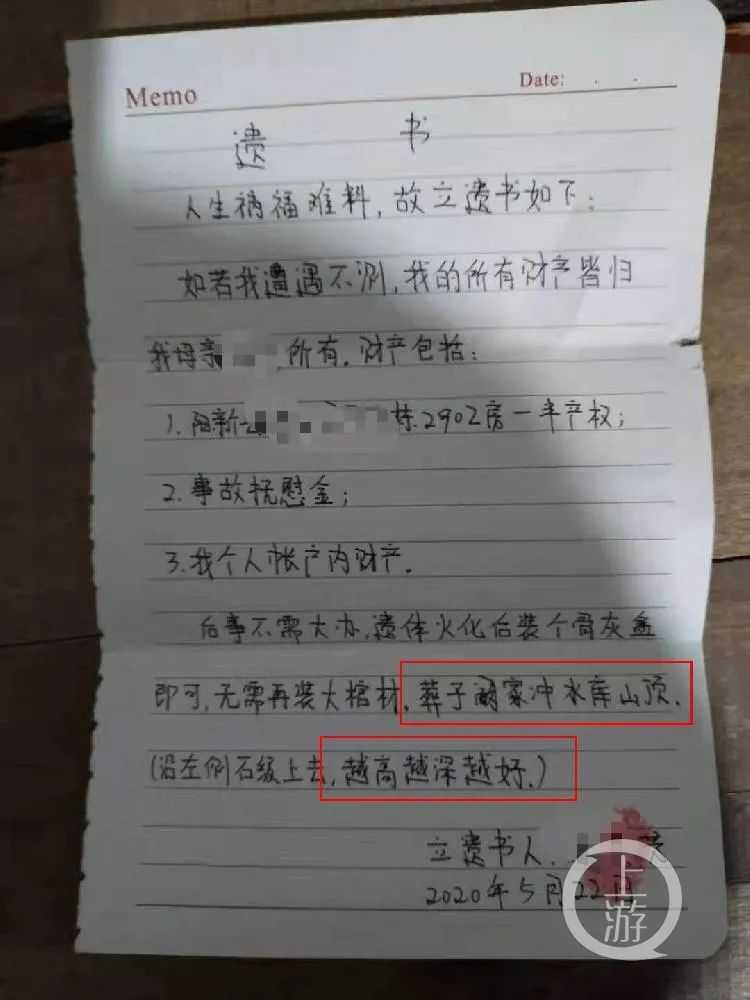 Memo Date: . .
遗 书
人生祸福难料,故立遗书如下:
如若我遭遇不测,我的所有财产皆归
我母亲 所有.财产包括:
1.阳新 栋2902房一半产权;
2.事故抚慰金;
3.我个人帐户内财产.
后事不需大办,遗体火化后装个骨灰盒
即可,无需再装大棺材.葬于阚家冲水库山顶.
(沿左侧石级上去,越高越深越好.)
立遗书人.
2020年5月22日
上游